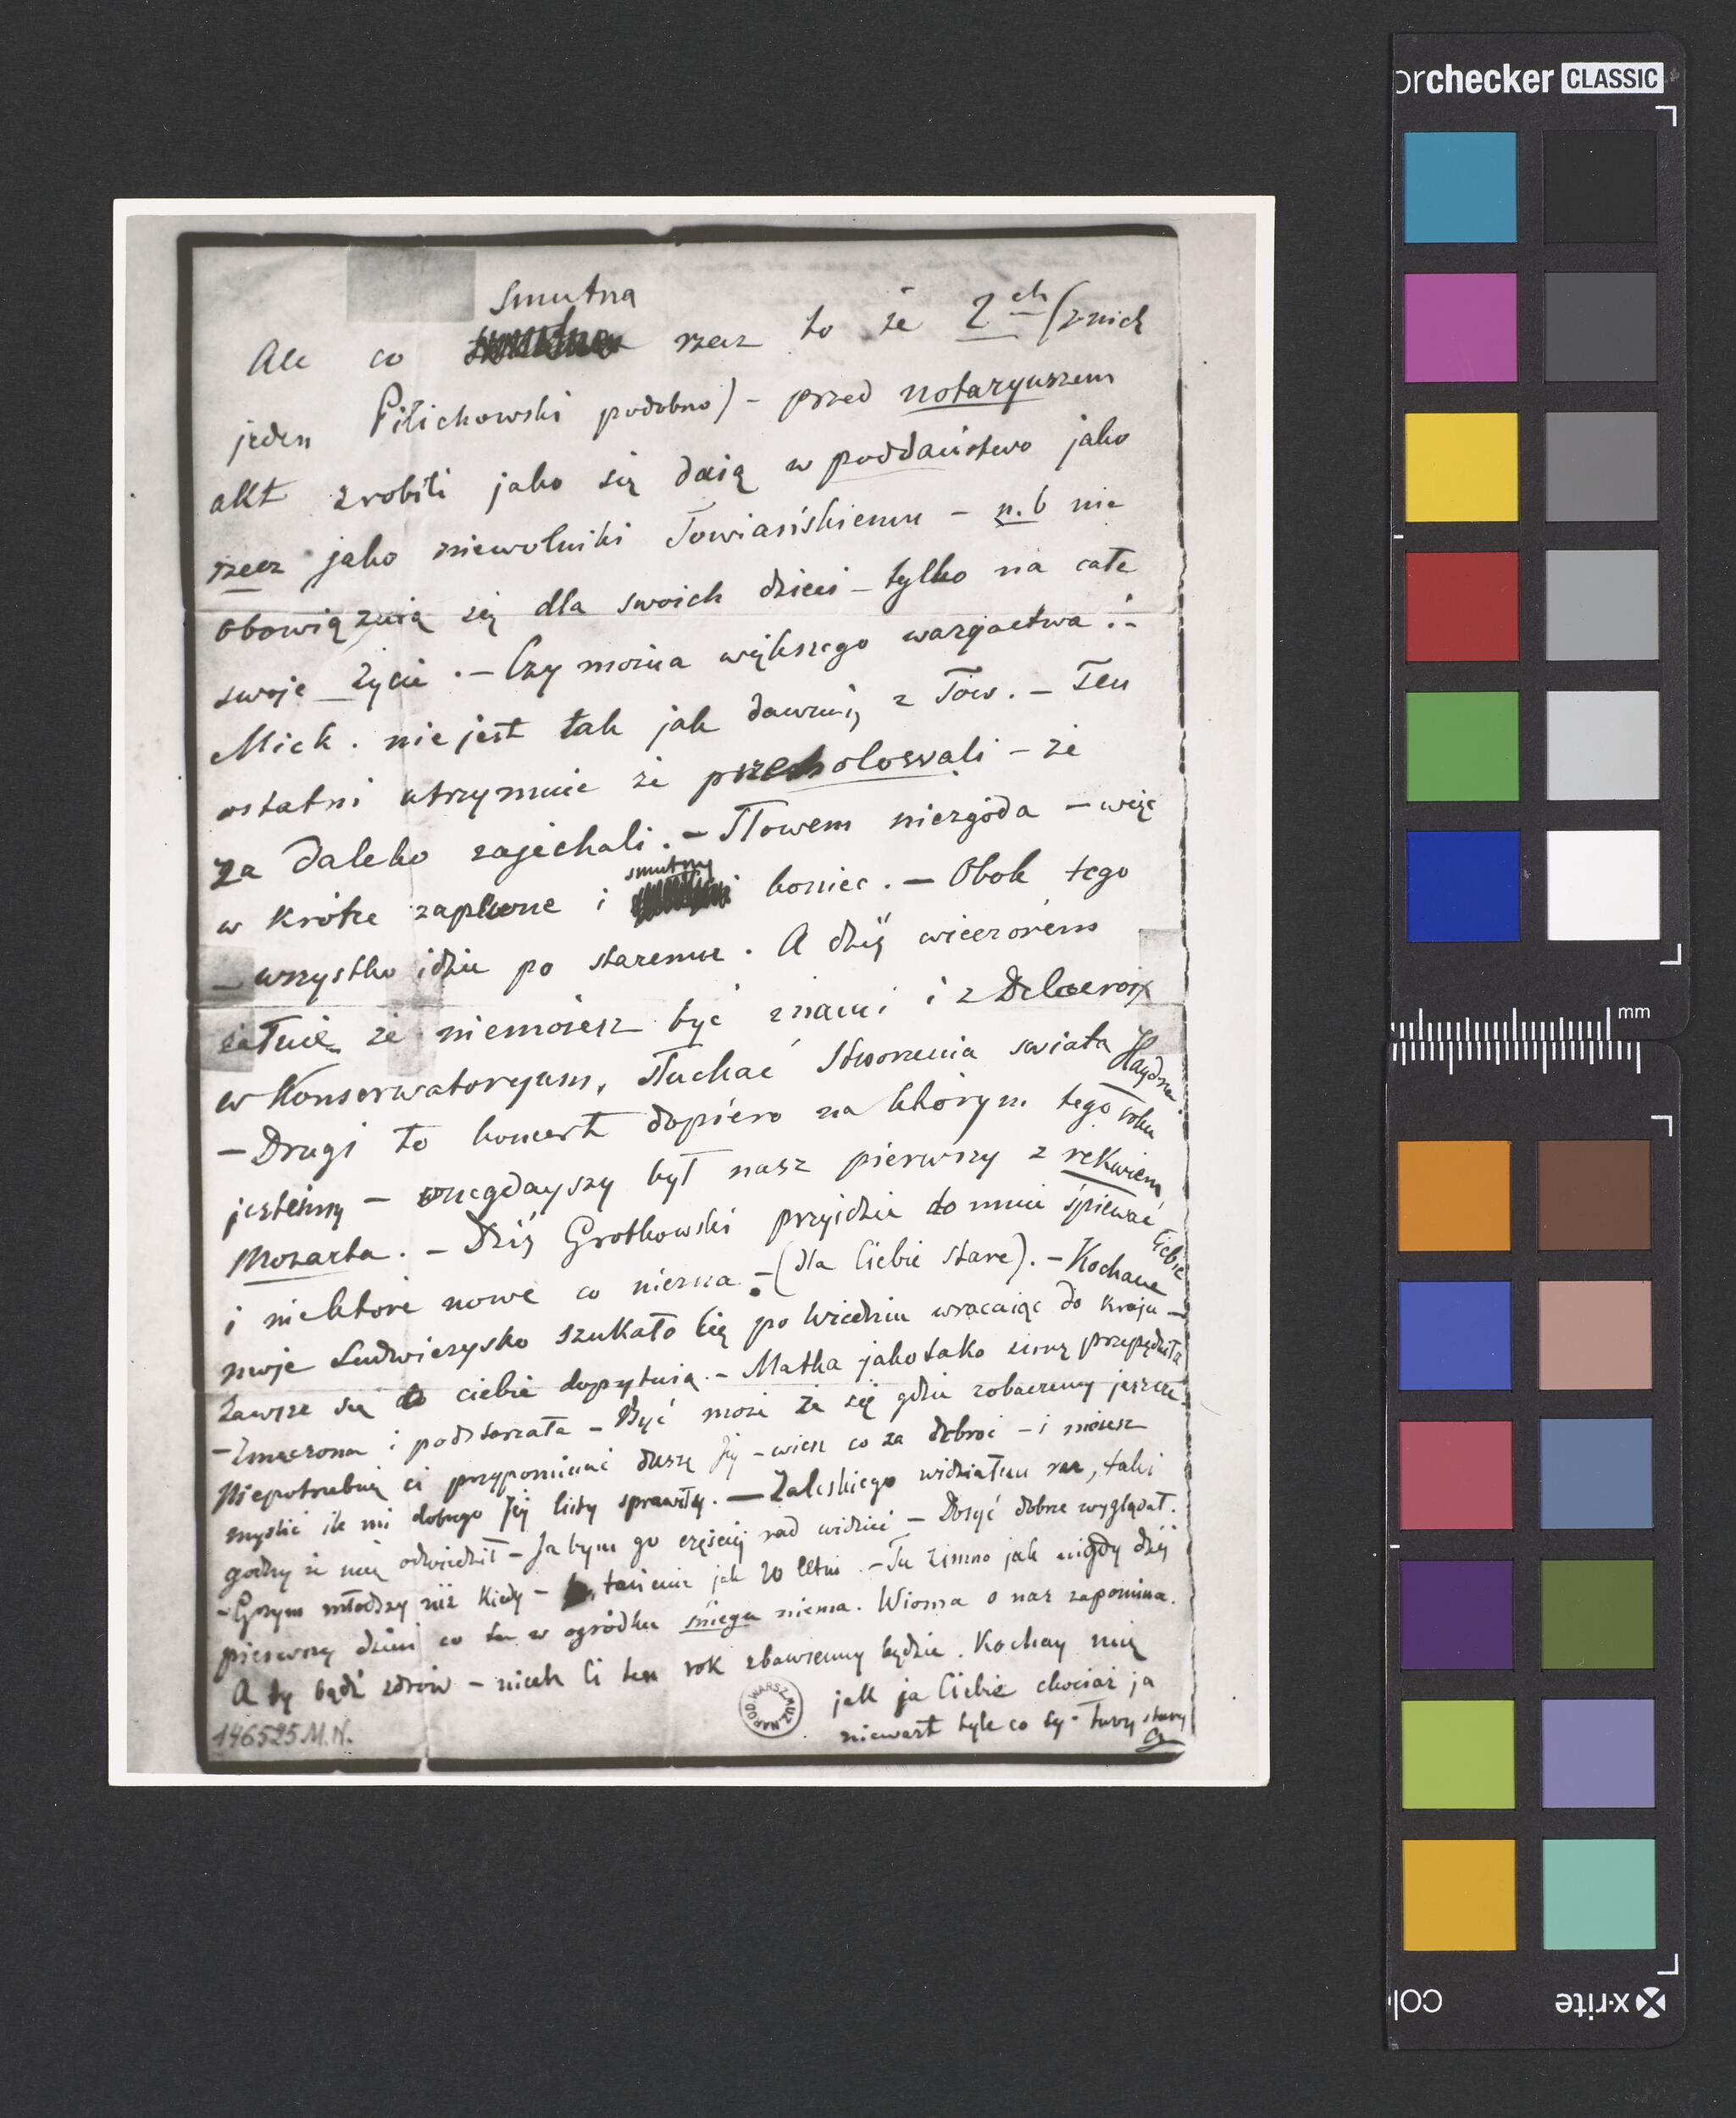 Smutna
Ale co rzecz to że 2ch (z nich
jeden Pilichowski podobno) – przed notaryuszem
akt zrobili jako się daią w poddaństwo jako
rzecz jako niewolniki Towiańskiemu – n.b nie
obowiązuią się dla swoich dzieci – tylko na całe
swoje życie. – Czy można większego waryactwa :-
Mick. nie jest tak jak dawniej z Tow. – Ten
ostatni utrzymuie że przeholowali – że
za daleko zajechali. – Słowem niezgoda – więc
smutny
w krótce zapewne i koniec. – Obok tego
wszystko idzie po staremu. A dziś wieczorem
żałuię że niemożesz być z nami i z Delacroix
w Konserwatoryum, słuchać Stworzenia swiata Haydna.
– Drugi to koncert dopiero na którym tego roku
jesteśmy – onegdayszy był nasz pierwszy z rekwiem
Mozarta. – Dziś Grotkowski przyidzie do mnie śpiewać
i niektóre nowe co nieznasz – (dla Ciebie stare). – Kochane Ciebie
moje Ludwiczysko szukało Cię po Wiedniu wracaiąc do kraju –
Zawsze się o ciebie dopytuią. – Matka jako tako zimę przepędziła
– Zmęczona i podstarzała – Być może że się gdzie zobaczemy jeszcze
Niepotrzebuię ci przypominać duszę Jej – wiesz co za dobroć – i możesz
myślić ile mi dobrego Jej listy sprawiły. – Zaleskiego widziałem raz, taki
godny że mię odwiedził – Ja bym go częściej rad widzieć – Dosyć dobrze wyglądał.
– Grzym młodszy niż kiedy – tańcuie jak 20 letni. – Tu zimno jak nigdy dziś
pierwszy dzień co tu w ogródku śniegu niema. Wiosna o nas zapomina.
A ty bądź zdrów – niech Ci ten rok zbawienny będzie. Kochay mię
jak ja Ciebie chociaż ja
niewart tyle co ty – Twóy stary
Ch
146525 M.N.
MUZ. NAROD. WARSZ.
orchecker CLASSIC
mm
x-rite
colo